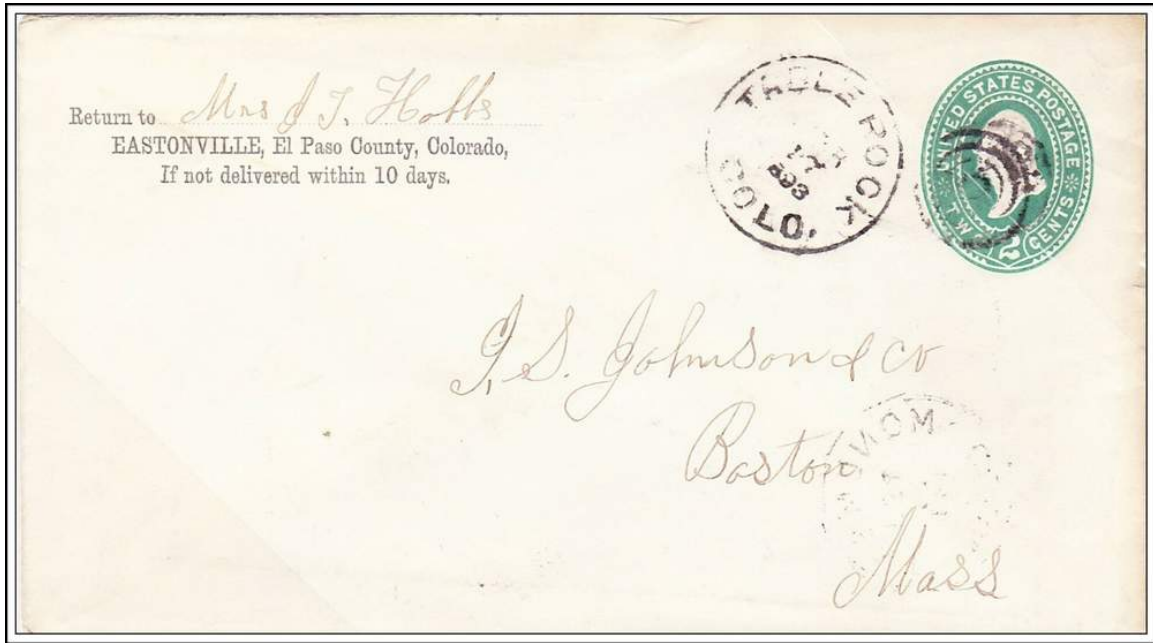 Return to Mrs J T. Hobbs
EASTONVILLE, El Paso County, Colorado,
If not delivered within 10 days.
TABLE ROCK
COLO.
UNITED STATES POSTAGE
TWO 2 CENTS
I. S. Johnson & Co
Boston
Mass